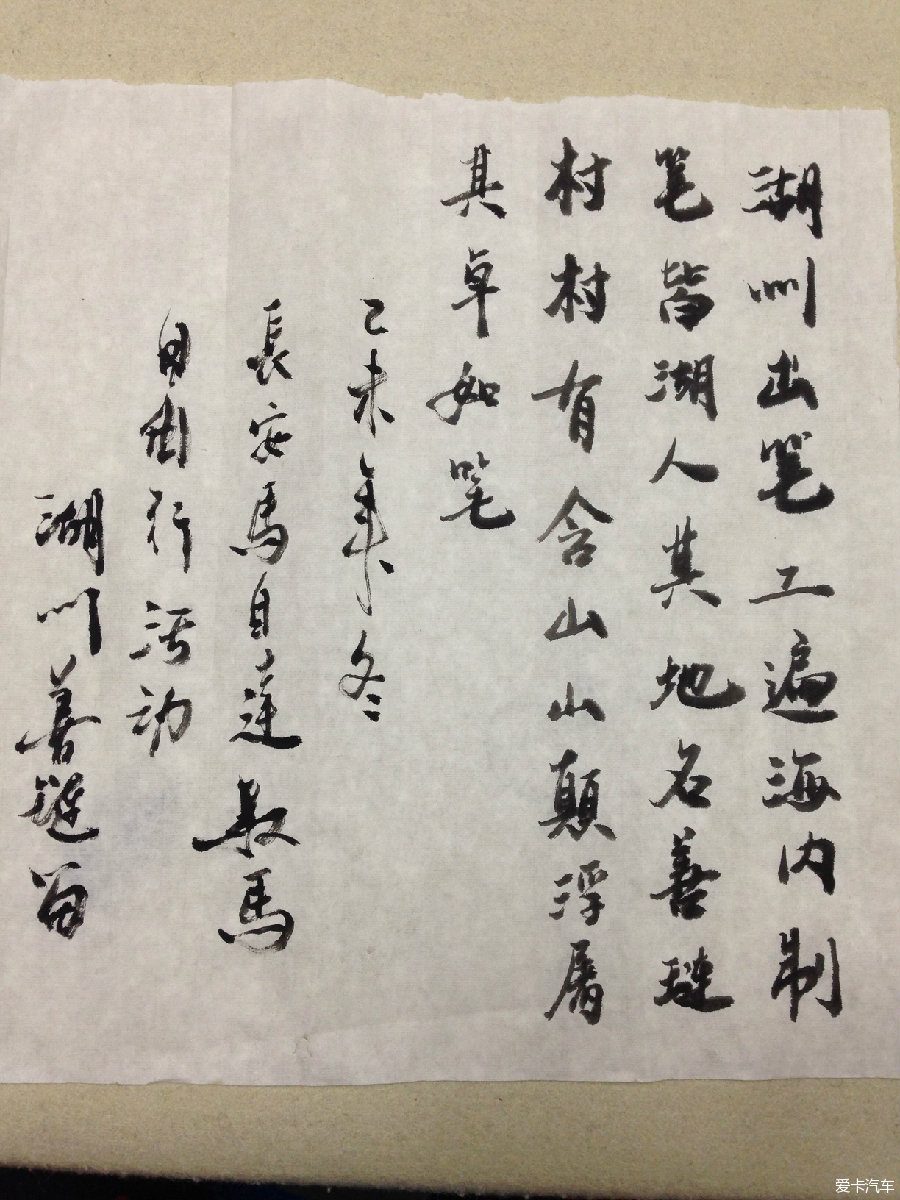 湖州出笔工遍海内制
笔皆湖人其地名善琏
村村有含山山顛浮屠
其卓如笔
己未年冬
長安馬自達馬
自由行活动
湖州善琏留
爱卡汽车